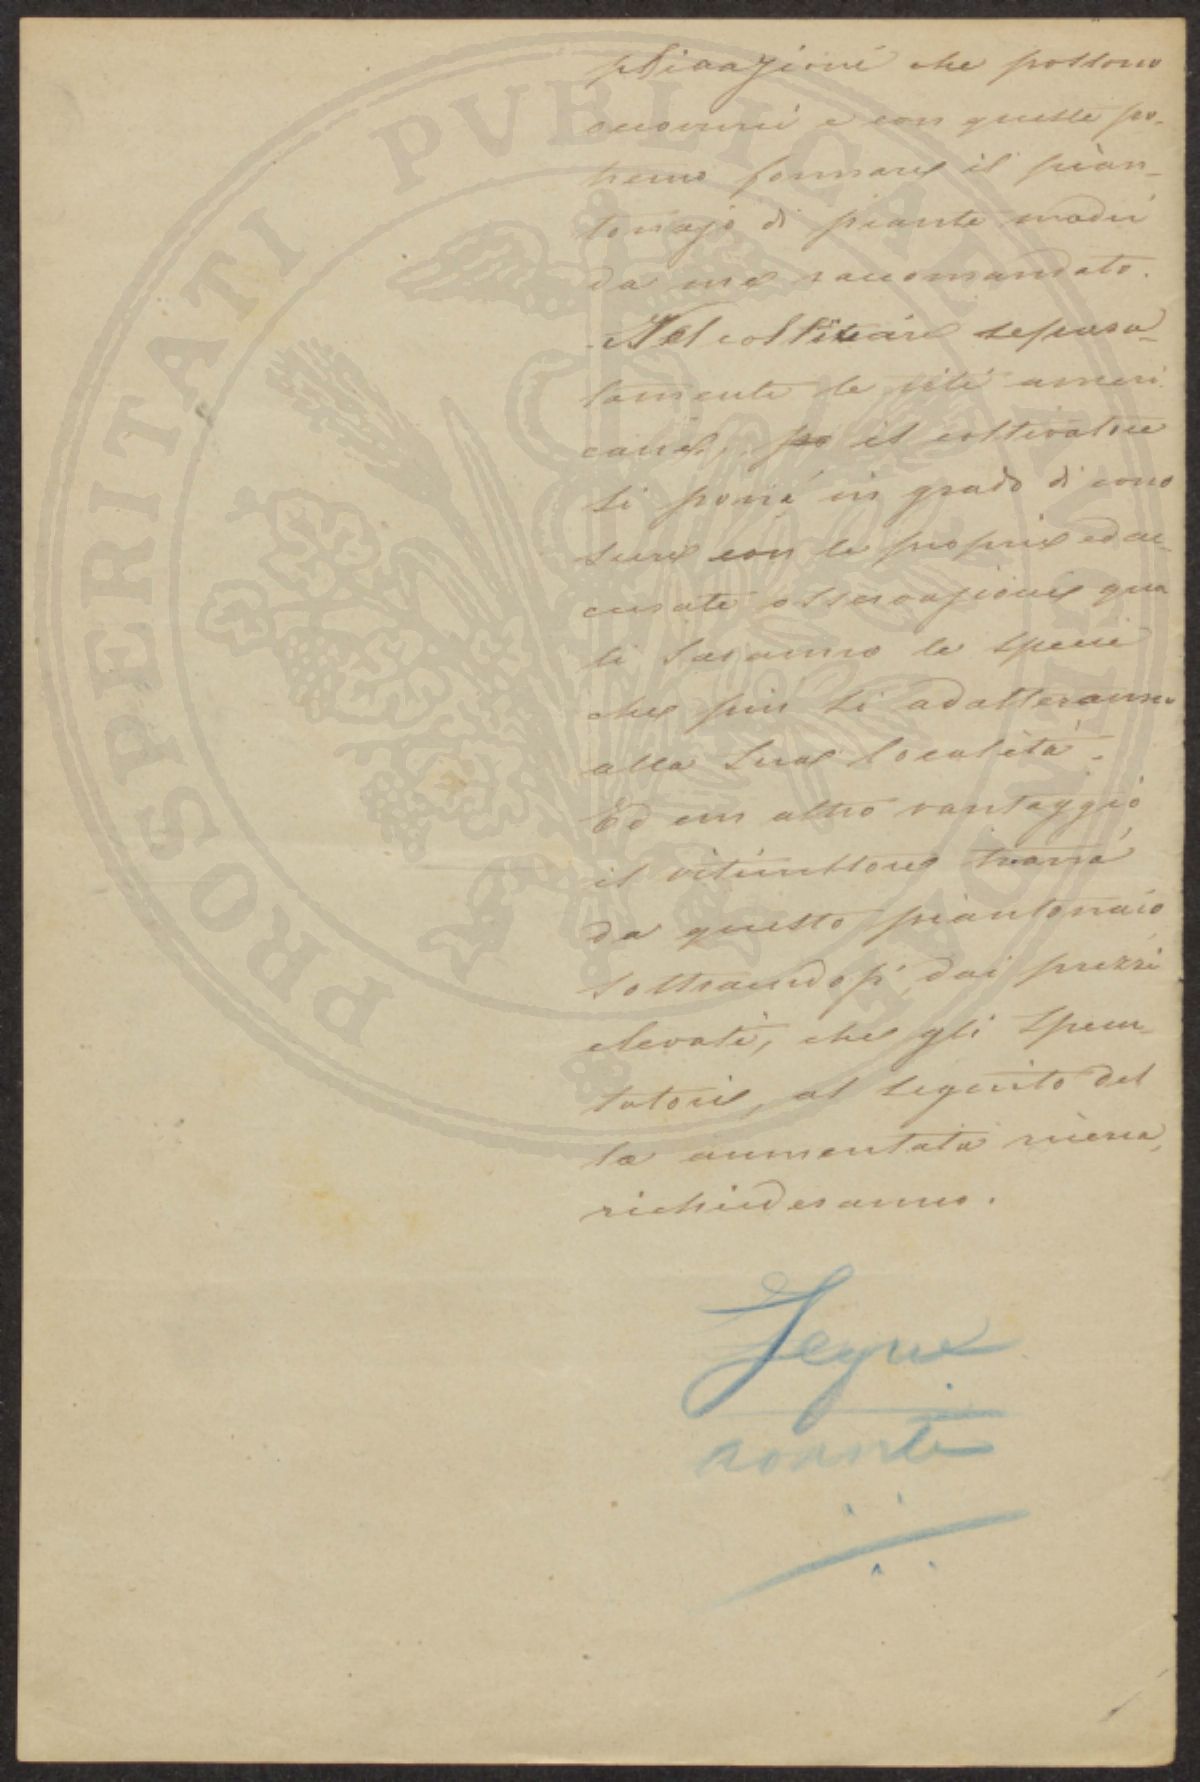 plicazioni che possono
occorrerci e con queste po-
tremo formare il pian-
tonajo di piante madri
da me raccomandato.
Nel coltivare separa-
tamente le viti ameri
cane, il coltivatore
si porrá in grado di cono
scere con le proprie ed ac-
curate osservazioni qua
li saranno le specie
che piu si adatteranno
alla sua localitá.
Ed un altro vantaggio
il viticultore trarrá
da questo piantonaio
sottraendosi dai prezzi
elevati, che gli specu-
latori, al seguito del
la aumentata ricerca,
richiederanno.
Segue
avanti
PROSPERITATI PVBLICAE AVGENDAE